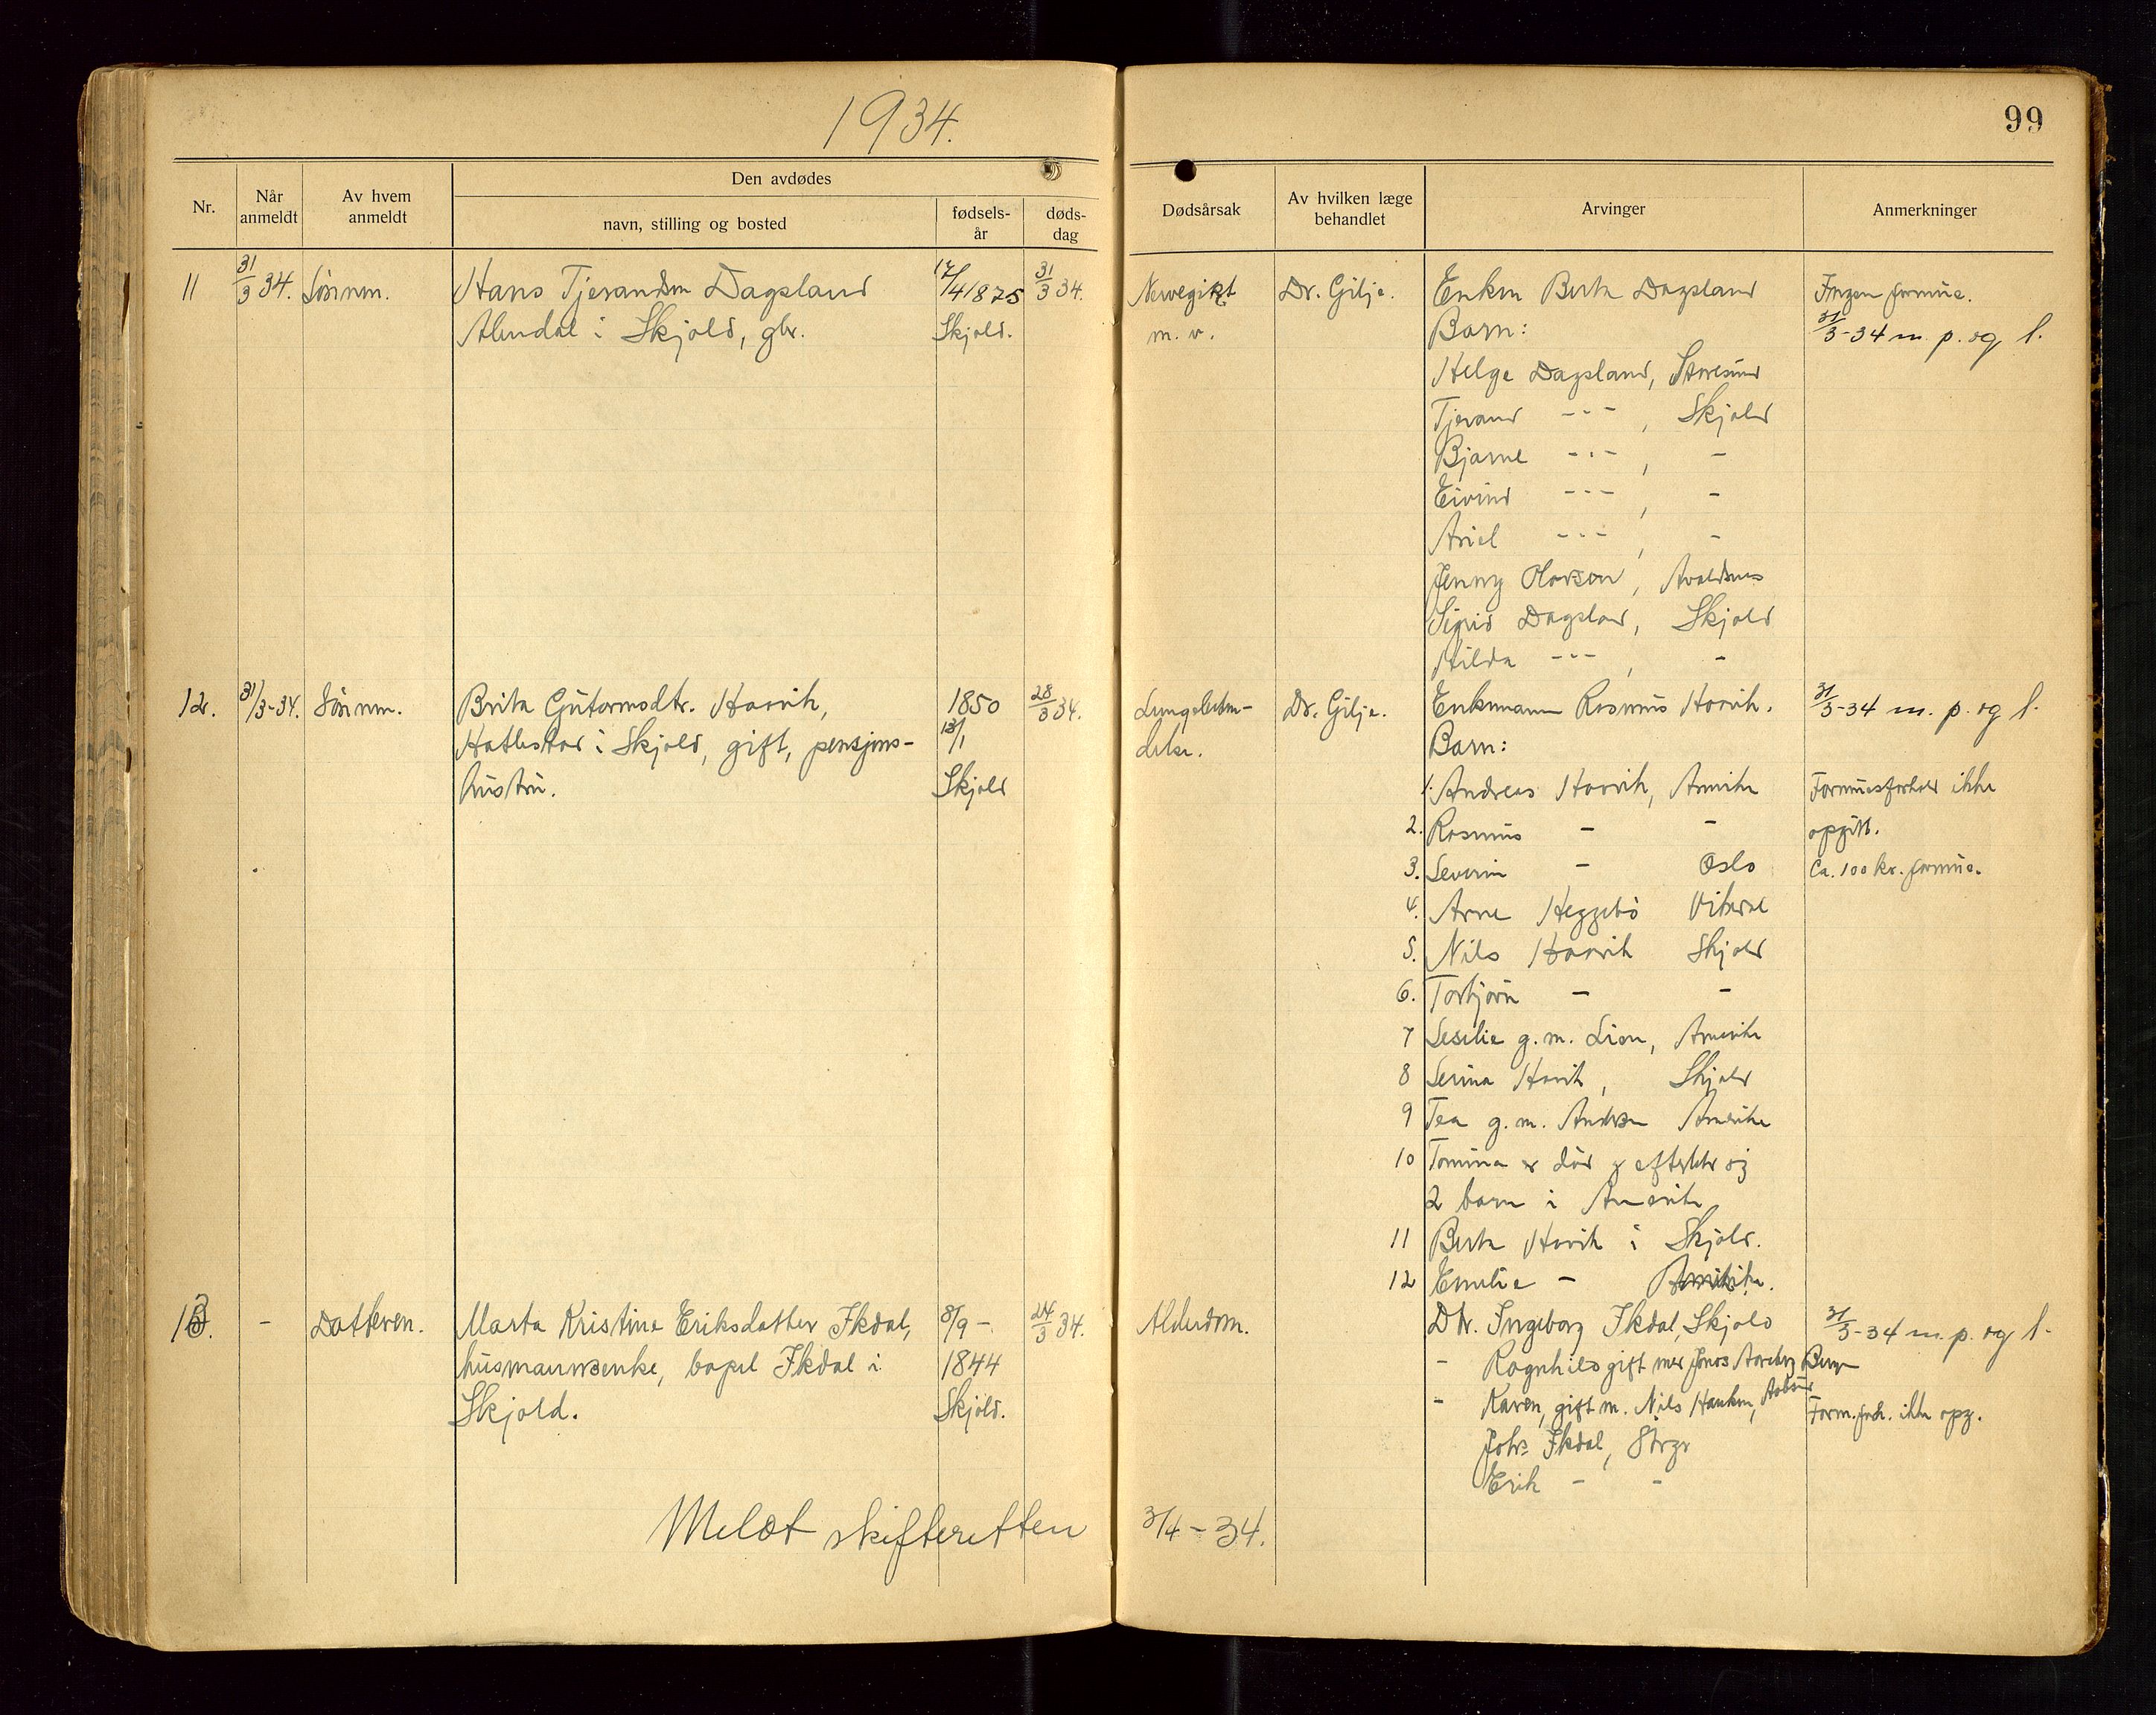 1934.
99
Nr.
Når anmeldt
Av hvem anmeldt
Den avdødes
navn, stilling og bosted
fødsels-år
døds-dag
Dødsårsak
Av hvilken læge behandlet
Arvinger
Anmerkninger
11 31/3 34. Sönnen. Hans Tjerandsen Dagsland 17/4 1875 31/3 34. Nervegikt Dr. Gilje. Enken Berta Dagsland Ingen formue.
i Skjold, gbr. Skjold. m. v. Barn: 31/3-34 m. p. og l.
Helge Dagsland, Storesund
Tjerand -"- , Skjold
Bjarne -"- , -
Eivind -"- , -
Ariel -"- , -
Jenny Olavsen, Avaldsnes
Sigrid Dagsland, Skjold
Hilda -"- , -
12. 31/3-34. Sönnen. Brita Gutormsdtr. Haavik, 1850 28/3 34. Lungebeten- Dr. Gilje. Enkemann Rasmus Haavik. 31/3-34 m. p. og l.
i Skjold, gift, pensjons- 13/1 delse. Barn:
hustru. Skjold 1. Andreas Haavik, Amerika Formuesforhold ikke
2. Rasmus - - opgitt.
3. Severin - Oslo Ca. 100 kr. formue.
4. Arne Heggebö Vikedal
5. Nils Haavik Skjold
6. Torbjörn - -
7 Sesilie g. m. Lien, Amerika
8 Serina Havik, Skjold
9 Tea g. m. Andersen Amerika
10 Tomina er död og efterlater sig
2 barn i Amerika
11 Berta Havik i Skjold.
12 Emilie - Amerika.
13. - Datteren. Marta Kristine Eriksdatter Ikdal, 8/9 - 24/3 34. Alderdom. Dtr. Ingeborg Ikdal, Skjold 31/3-34 m. p. og l.
husmannsenke, bopel Ikdal i 1844 - Ragnhild gift med Jonas Bergen
Skjold. Skjold. - Karen, gift m. Nils Form.forh. ikke opg.
Johs Ikdal,
Erik - -
Meldt skifteretten 3/4-34.